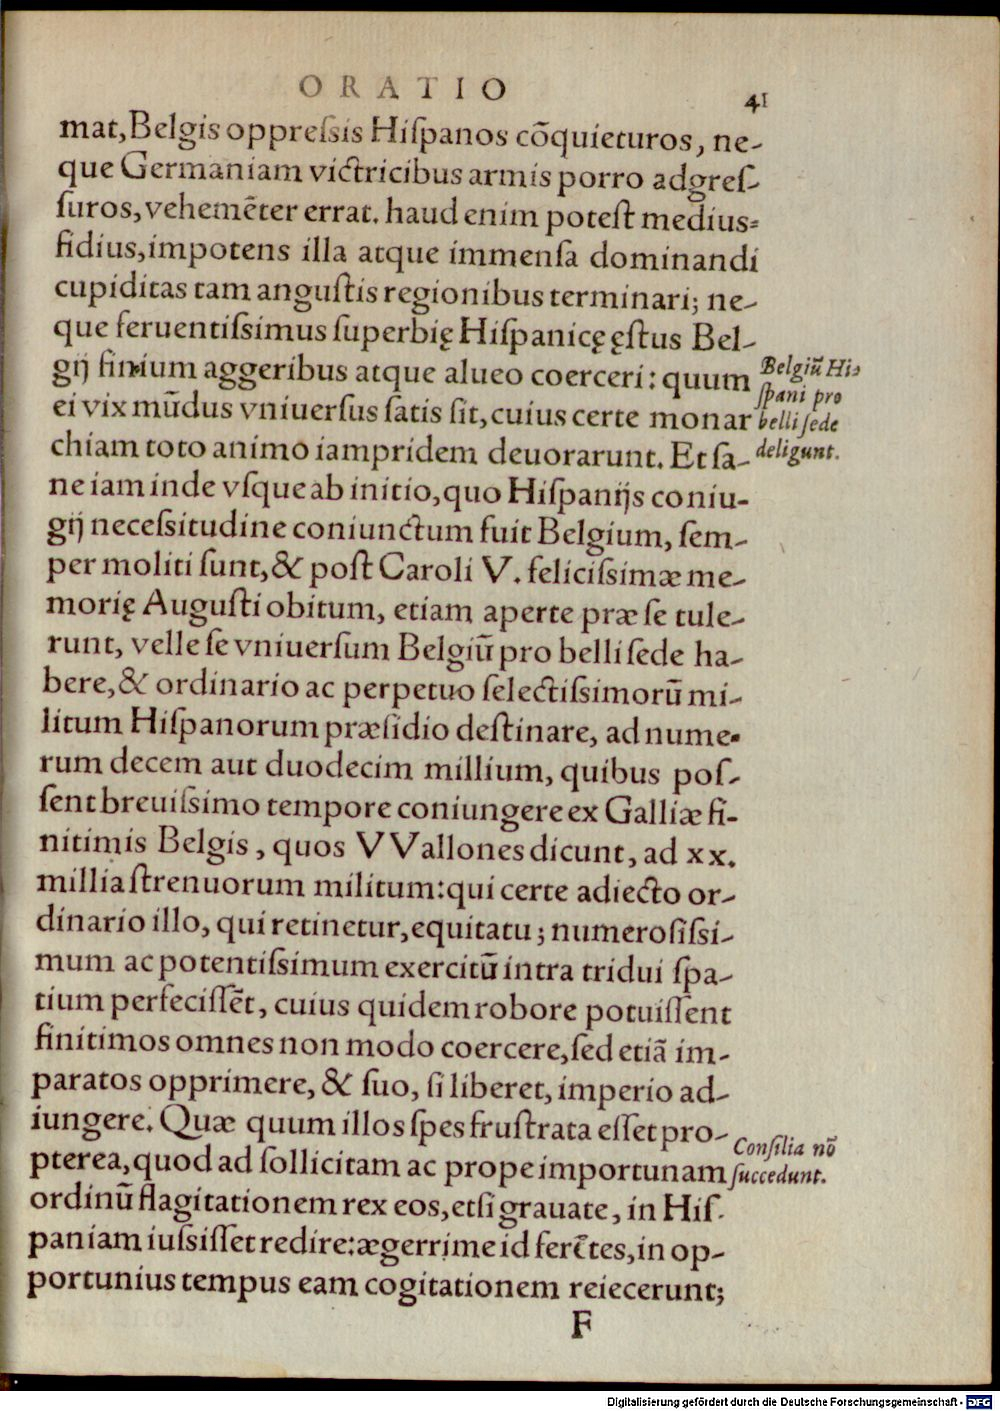 ORATIO
41
mat, Belgis oppreſsis Hiſpanos cõquieturos, ne-
que Germaniam victricibus armis porro adgreſ-
ſuros, vehemẽter errat. haud enim poteſt medius-
fidius, impotens illa atque immenſa dominandi
cupiditas tam anguſtis regionibus terminari; ne-
que feruentiſsimus ſuperbię Hiſpanicę ęſtus Bel-
gij finium aggeribus atque alueo coerceri: quum
ei vix mũdus vniuerſus ſatis ſit, cuius certe monar
chiam toto animo iampridem deuorarunt. Et ſa-
ne iam inde vſque ab initio, quo Hiſpanijs coniu-
gij neceſsitudine coniunctum fuit Belgium, ſem-
per moliti ſunt, & poſt Caroli V. feliciſsimæ me-
morię Auguſti obitum, etiam aperte præ ſe tule-
runt, velle ſe vniuerſum Belgiũ pro belli ſede ha-
bere, & ordinario ac perpetuo ſelectiſsimorũ mi-
litum Hiſpanorum præſidio deſtinare, ad nume-
rum decem aut duodecim millium, quibus poſ-
ſent breuiſsimo tempore coniungere ex Galliæ fi-
nitimis Belgis, quos VVallones dicunt, ad xx.
millia ſtrenuorum militum: qui certe adiecto or-
dinario illo, qui retinetur, equitatu; numeroſiſsi-
mum ac potentiſsimum exercitũ intra tridui ſpa-
tium perfeciſſẽt, cuius quidem robore potuiſſent
finitimos omnes non modo coercere, ſed etiã im-
paratos opprimere, & ſuo, ſi liberet, imperio ad-
iungere. Quæ quum illos ſpes fruſtrata eſſet pro-
pterea, quod ad ſollicitam ac prope importunam
ordinũ flagitationem rex eos, etſi grauate, in Hiſ-
paniam iuſsiſſet redire: ægerrime id ferẽtes, in op-
portunius tempus eam cogitationem reiecerunt;
F
Belgiũ Hi-
ſpani pro
belli ſede
deligunt.
Conſilia nõ
ſuccedunt.
Digitalisierung gefördert durch die Deutsche Forschungsgemeinschaft - DFG